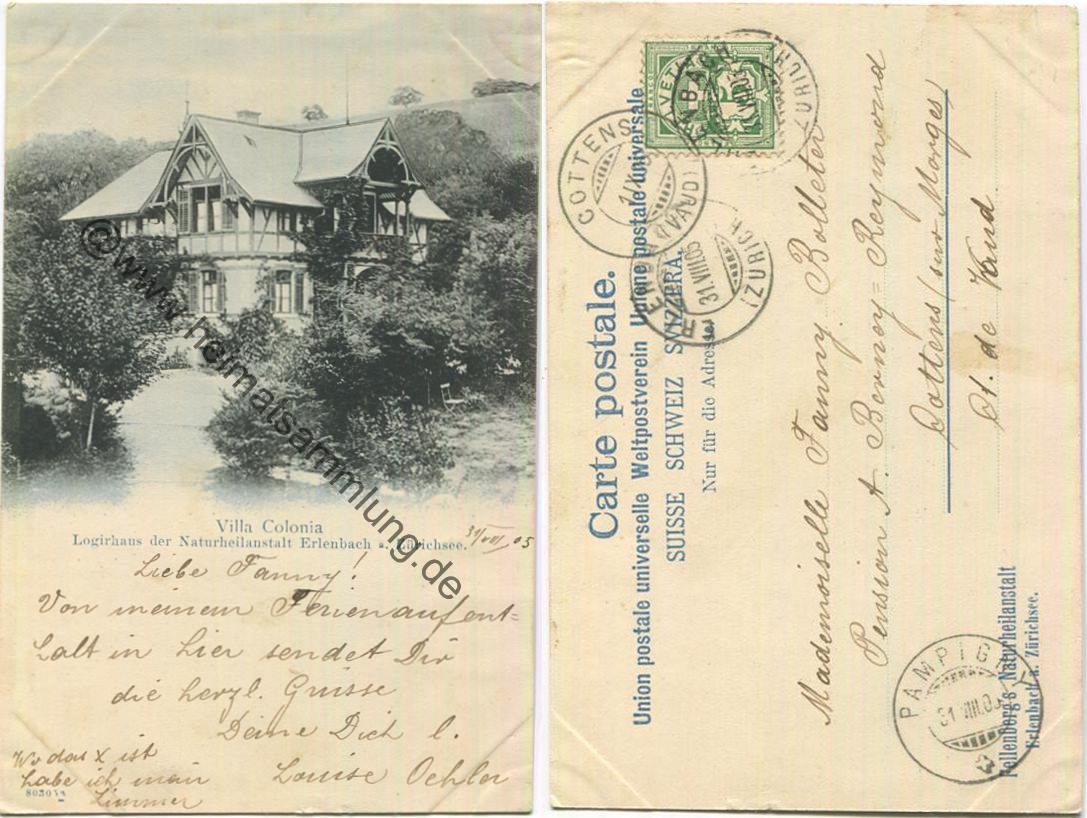 Villa Colonia
Logirhaus der Naturheilanstalt Erlenbach a. Zürichsee.
31/VIII 05
Liebe Fanny!
Von meinem Ferienaufent=
halt in hier sendet Dir
die herzl. Grüsse
Deine Dich l.
Louise Oehler
Wo das X ist
habe ich mein
Zimmer
©www.heimatsammlung.de
Carte postale.
Union postale universelle Weltpostverein Unione postale universale
SUISSE SCHWEIZ SVIZZERA.
Nur für die Adresse
Mademoiselle Fanny Bolleter
Pension A. Berney=Reymond
Cottens (sur Morges)
Ct. de Vaud
Fellenberg's Naturheilanstalt
Erlenbach a. Zürichsee.
COTTENS
(VAUD)
ERLENBACH
31.VIII.05
(ZÜRICH)
PAMPIGNY
31.VIII.05
HELVETIA
5